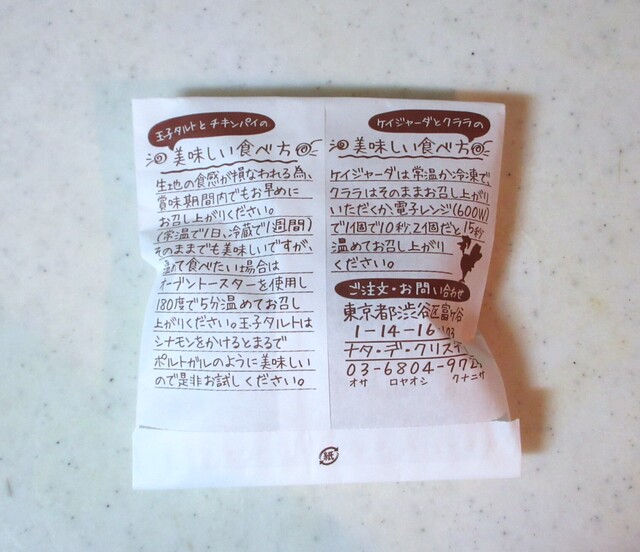 玉子タルトとチキンパイの
美味しい食べ方
生地の食感が損なわれる為、
賞味期間内でもお早めに
お召し上がりください。
(常温で1日、冷蔵で1週間)
そのままでも美味しいですが、
食べたい場合は
オーブントースターを使用し
180度で5分温めてお召し
上がりください。玉子タルトは
シナモンをかけるとまるで
ポルトガルのように美味しい
ので是非お試しください。
ケイジャーダとクララの
美味しい食べ方
ケイジャーダは常温か冷凍で、
クララはそのままお召し上がり
いただくか、電子レンジ(600W)
で1個で10秒、2個だと15秒
温めてお召し上がり
ください。
ご注文・お問い合わせ
東京都渋谷区富ヶ谷
1-14-16
ナタ・デ・クリスチ
03-6804-97
オサ ロヤオシ クナニサ
紙